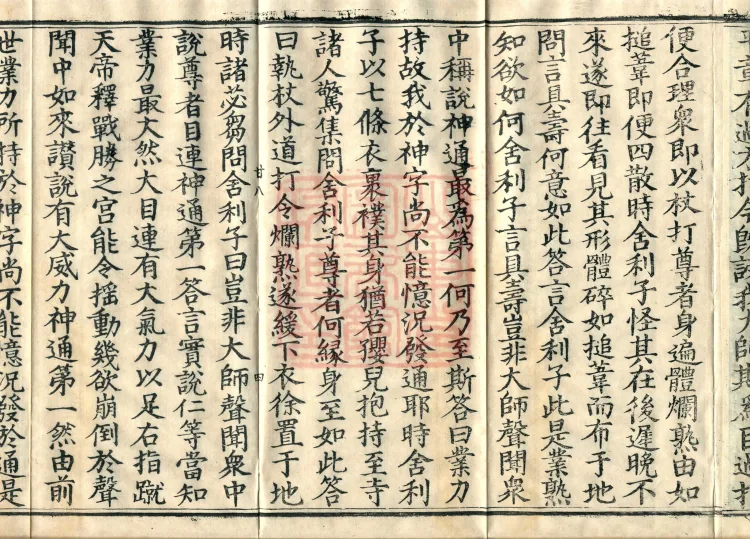 便合理衆即以杖打尊者身遍體爛熟由如
搥葦即便四散時舍利子怪其在後遲晚不
來遂即往看見其形體碎如搥葦而布于地
問言具壽何意如此答言舍利子此是業熟
知欲如何舍利子言具壽豈非大師聲聞衆
中稱說神通最為第一何乃至斯答曰業力
持故我於神字尚不能憶況發通耶時舍利
子以七條衣裹襆其身猶若孾兒抱持至寺
諸人驚集問舍利子尊者何緣身至如此答
曰執杖外道打令爛熟遂緩下衣徐置于地
廿八 四
時諸苾芻問舍利子曰豈非大師聲聞衆中
說尊者目連神通第一答言實說仁等當知
業力最大然大目連有大氣力以足右指蹴
天帝釋戰勝之宮能令搖動幾欲崩倒於聲
聞中如來讃說有大威力神通第一然由前
世業力所持於神字尚不能憶況發於通是